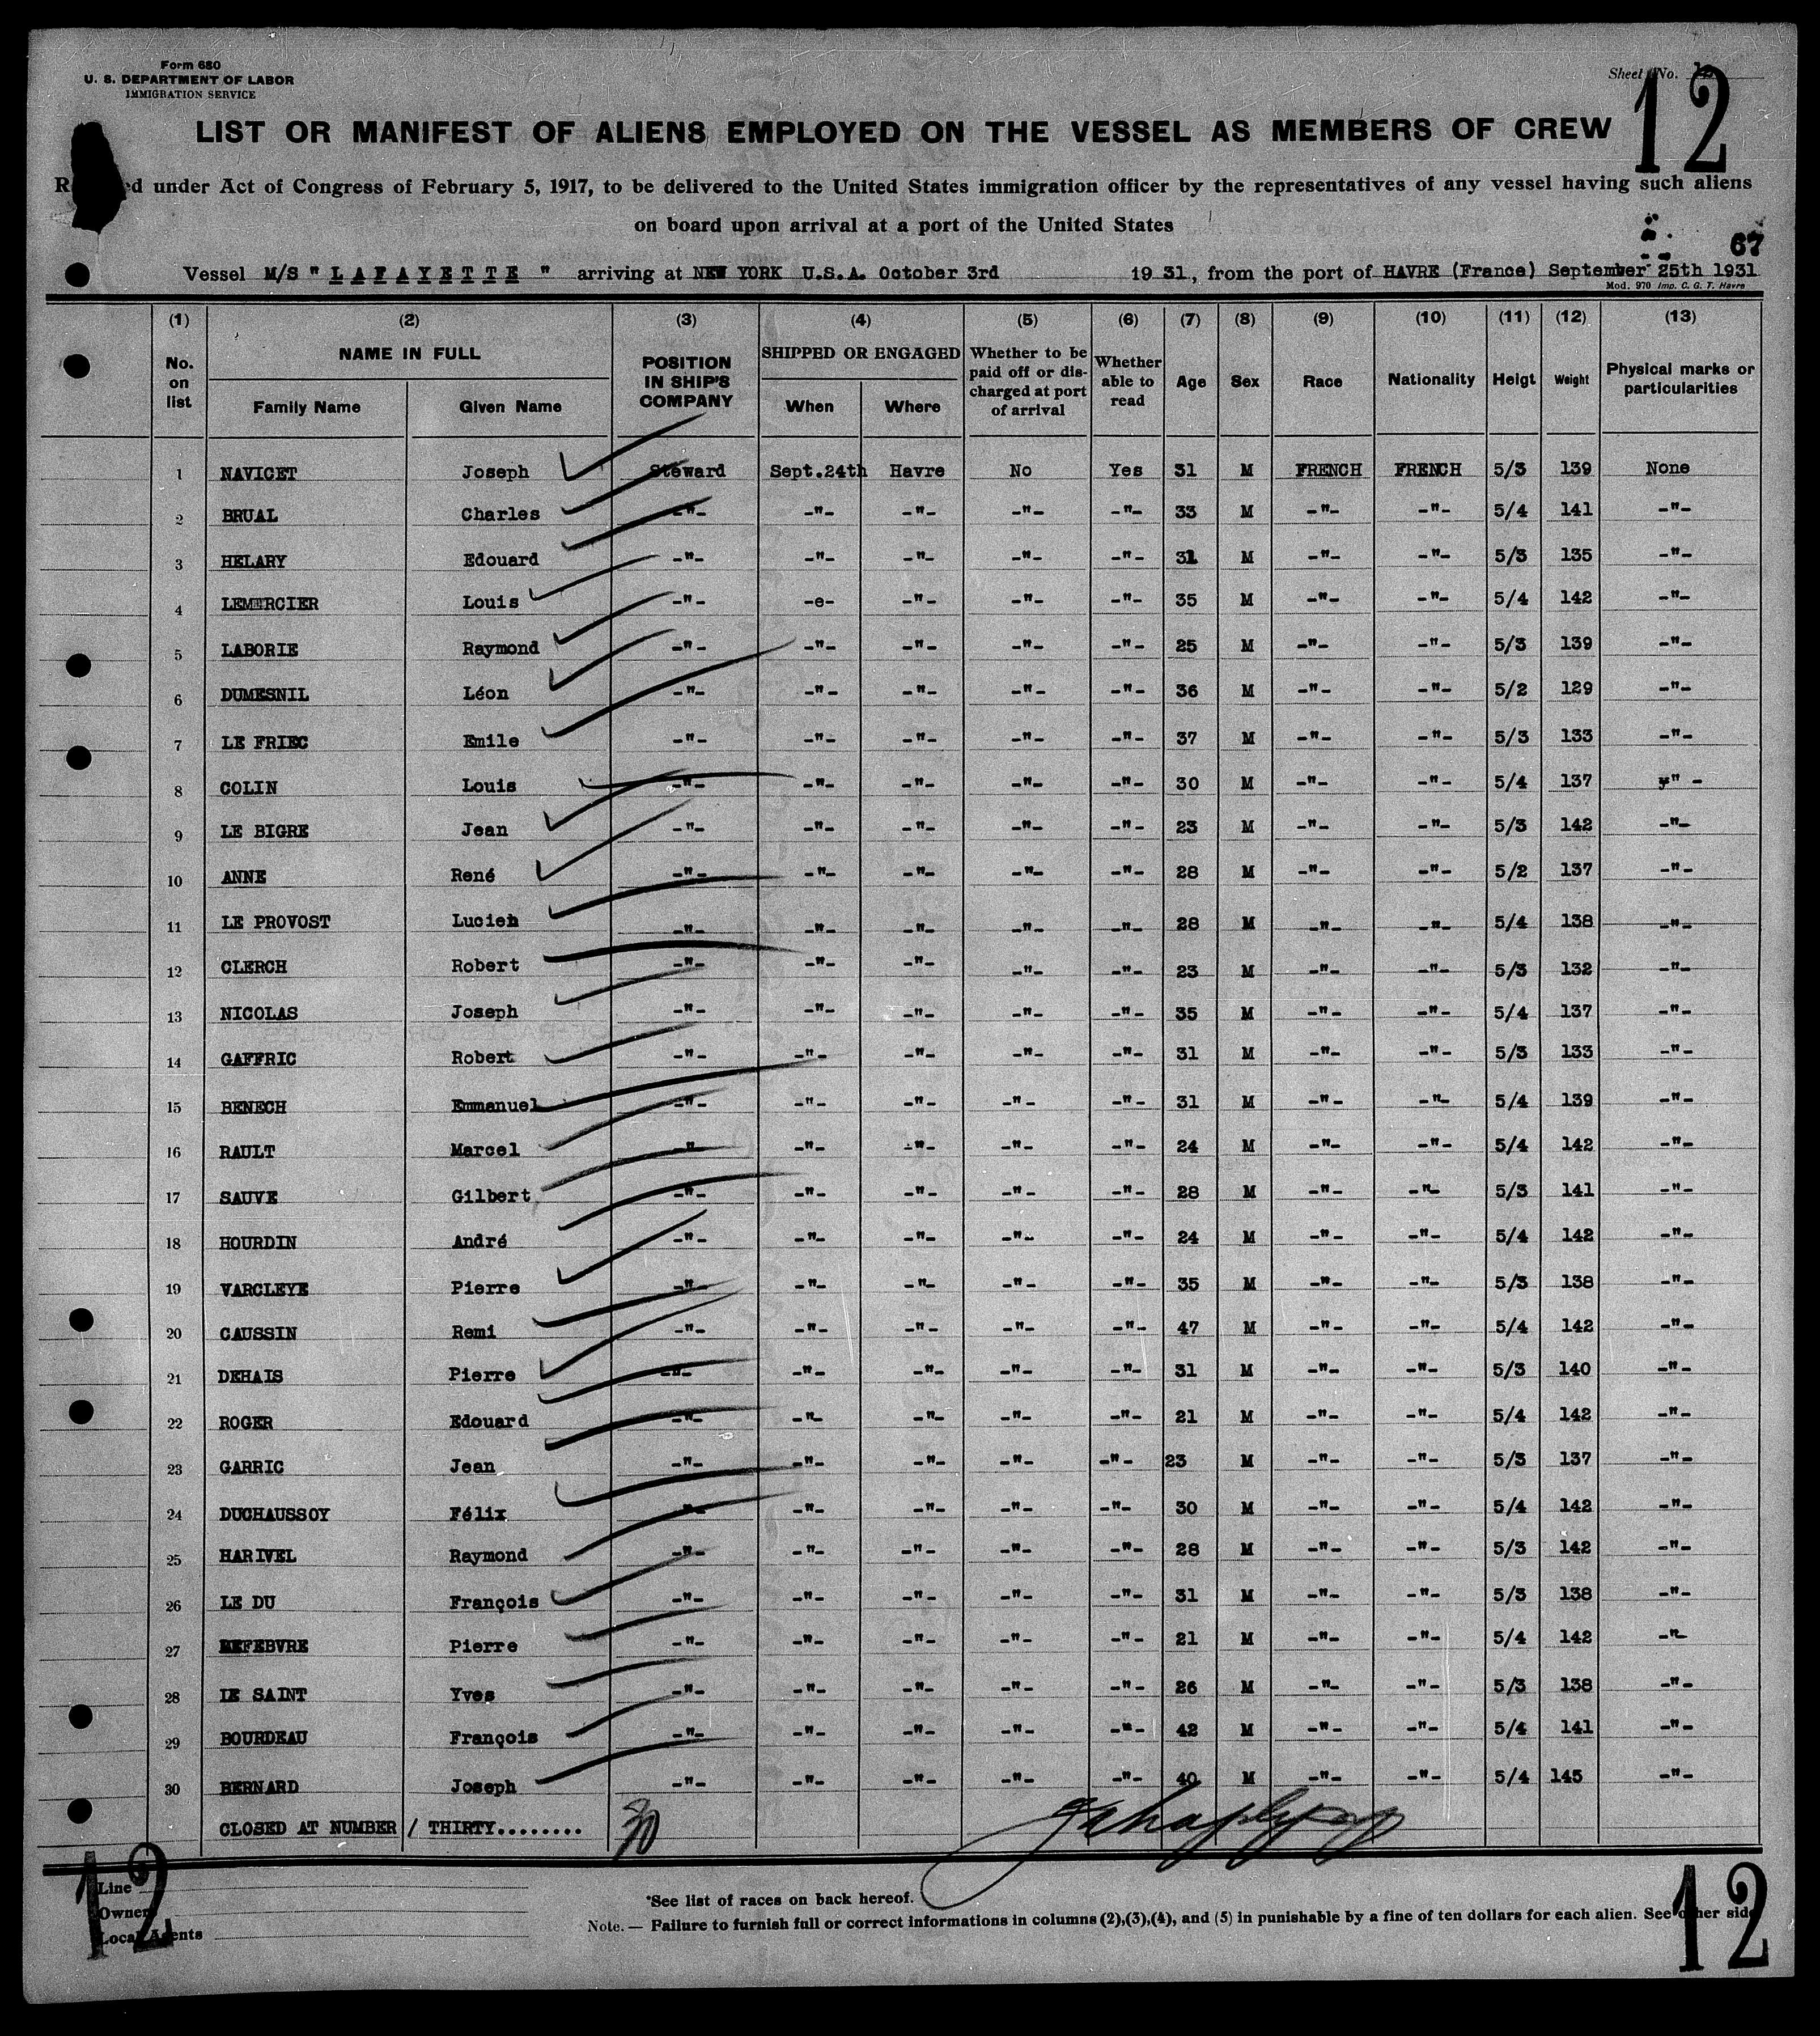 Form 680
U. S. DEPARTMENT OF LABOR
IMMIGRATION SERVICE
Sheet No.
12
LIST OR MANIFEST OF ALIENS EMPLOYED ON THE VESSEL AS MEMBERS OF CREW
under Act of Congress of February 5, 1917, to be delivered to the United States immigration officer by the representatives of any vessel having such aliens
on board upon arrival at a port of the United States
67
Vessel M/S " LAFAYETTE " arriving at NEW YORK U.S.A. October 3rd 1931, from the port of HAVRE (France) September 25th 1931
Mod. 970 Imp. C. G. T. Havre
(1) (2) (3) (4) (5) (6) (7) (8) (9) (10) (11) (12) (13)
No. on list NAME IN FULL Family Name Given Name POSITION IN SHIP'S COMPANY SHIPPED OR ENGAGED When Where Whether to be paid off or discharged at port of arrival Whether able to read Age Sex Race Nationality Heigt Weight Physical marks or particularities
1 NAVICET Joseph Steward Sept.24th Havre No Yes 31 M FRENCH FRENCH 5/3 139 None
2 BRUAL Charles -"- -"- -"- -"- -"- 33 M -"- -"- 5/4 141 -"-
3 HELARY Edouard -"- -"- -"- -"- -"- 31 M -"- -"- 5/3 135 -"-
4 LEMERCIER Louis -"- -e- -"- -"- -"- 35 M -"- -"- 5/4 142 -"-
5 LABORIE Raymond -"- -"- -"- -"- -"- 25 M -"- -"- 5/3 139 -"-
6 DUMESNIL Léon -"- -"- -"- -"- -"- 36 M -"- -"- 5/2 129 -"-
7 LE FRIEC Emile -"- -"- -"- -"- -"- 37 M -"- -"- 5/3 133 -"-
8 COLIN Louis -"- -"- -"- -"- -"- 30 M -"- -"- 5/4 137 " -
9 LE BIGRE Jean -"- -"- -"- -"- -"- 23 M -"- -"- 5/3 142 -"-
10 ANNE René -"- -"- -"- -"- -"- 28 M -"- -"- 5/2 137 -"-
11 LE PROVOST Lucien -"- -"- -"- -"- -"- 28 M -"- -"- 5/4 138 -"-
12 CLERCH Robert -"- -"- -"- -"- -"- 23 M -"- -"- 5/3 132 -"-
13 NICOLAS Joseph -"- -"- -"- -"- -"- 35 M -"- -"- 5/4 137 -"-
14 GAFFRIC Robert -"- -"- -"- -"- -"- 31 M -"- -"- 5/3 133 -"-
15 BENECH Emmanuel -"- -"- -"- -"- -"- 31 M -"- -"- 5/4 139 -"-
16 RAULT Marcel -"- -"- -"- -"- -"- 24 M -"- -"- 5/4 142 -"-
17 SAUVE Gilbert -"- -"- -"- -"- -"- 28 M -"- -"- 5/3 141 -"-
18 HOURDIN André -"- -"- -"- -"- -"- 24 M -"- -"- 5/4 142 -"-
19 VARCLEYE Pierre -"- -"- -"- -"- -"- 35 M -"- -"- 5/3 138 -"-
20 CAUSSIN Remi -"- -"- -"- -"- -"- 47 M -"- -"- 5/4 142 -"-
21 DEHAIS Pierre -"- -"- -"- -"- -"- 31 M -"- -"- 5/3 140 -"-
22 ROGER Edouard -"- -"- -"- -"- -"- 21 M -"- -"- 5/4 142 -"-
23 GARRIC Jean -"- -"- -"- -"- -"- 23 M -"- -"- 5/3 137 -"-
24 DUCHAUSSOY Félix -"- -"- -"- -"- -"- 30 M -"- -"- 5/4 142 -"-
25 HARIVEL Raymond -"- -"- -"- -"- -"- 28 M -"- -"- 5/3 142 -"-
26 LE DU François -"- -"- -"- -"- -"- 31 M -"- -"- 5/3 138 -"-
27 LEFEBVRE Pierre -"- -"- -"- -"- -"- 21 M -"- -"- 5/4 142 -"-
28 LE SAINT Yves -"- -"- -"- -"- -"- 26 M -"- -"- 5/3 138 -"-
29 BOURDEAU François -"- -"- -"- -"- -"- 42 M -"- -"- 5/4 141 -"-
30 BERNARD Joseph -"- -"- -"- -"- -"- 40 M -"- -"- 5/4 145 -"-
CLOSED AT NUMBER / THIRTY........ 30
12
Line
Owner
Local Agents
*See list of races on back hereof.
Note. — Failure to furnish full or correct informations in columns (2),(3),(4), and (5) in punishable by a fine of ten dollars for each alien. See other side
12